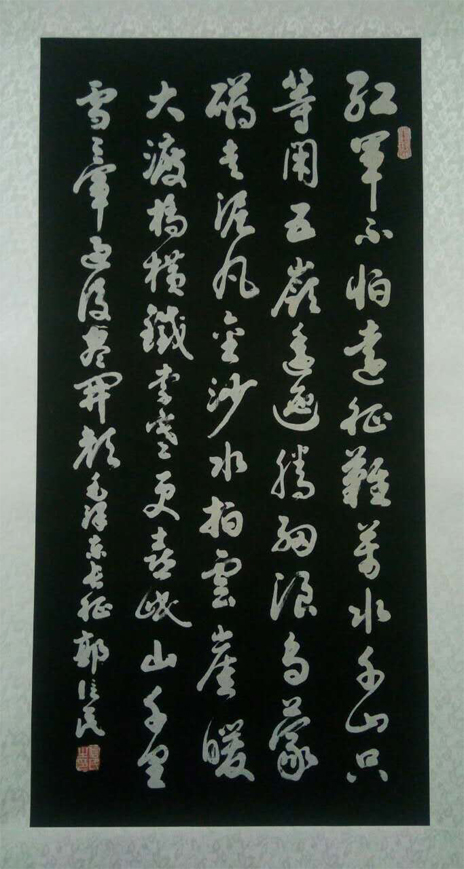 红军不怕远征难万水千山只
等闲五岭逶迤腾细浪乌蒙
磅走泥丸金沙水拍云崖暖
大渡桥横铁索寒更喜岷山千里
雪三军过后尽开颜毛泽东长征郭信民